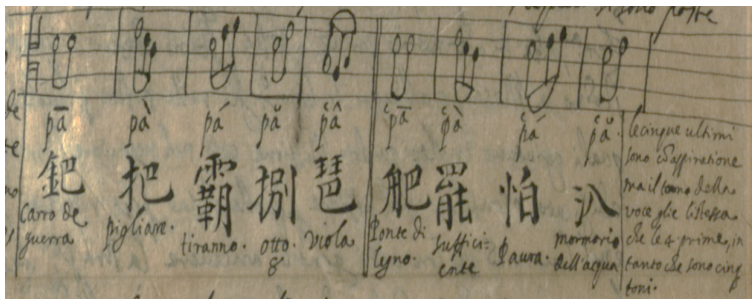 sono poste
pā pà pá pă pʻâ pʻā pʻà pʻá pʻă.
鈀 把 霸 捌 琶 舥 罷 怕 汃
Carro de
guerra
pigliare.
tiranno.
otto.
8
viola
Ponte di
legno.
suffici:
ente
Paura.
mormorio
dell'acqua
le cinque ultimi
sono cō aspiratione
ma il tono della
voce glie l'istessa
che le 4 prime, in
tanto che sono cinq
toni.